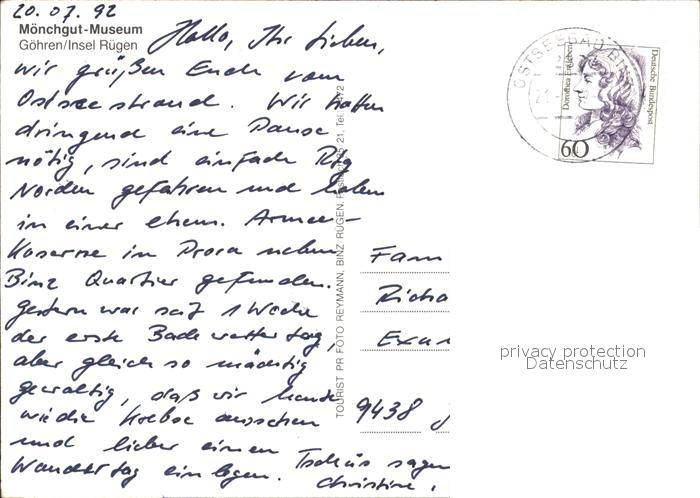 20.07.92
Mönchgut-Museum
Göhren/Insel Rügen
Hallo, Ihr Lieben,
wir grüßen Euch vom
Ostseestrand. Wir hatten
dringend eine Pause
nötig, sind einfach Ri
Norden gefahren und haben
in einer ehem. Armee-
Kaserne in Prora neben
Binz Quartier gefunden.
Gestern war seit 1 Woche
der erste Badewettertag,
aber gleich so mächtig
gewaltig, daß wir heute
wie die Krebse aussehen
und lieber einen
Wandertag einlegen. Tschüs sagen
Christine,
TOURIST PR FOTO REYMANN, BINZ RÜGEN, 21, Tel. 2472
OSTSEEBAD BINZ
Dorothea Erxleben
Deutsche Bundespost
60
Fam
Richa
9438
privacy protection
Datenschutz